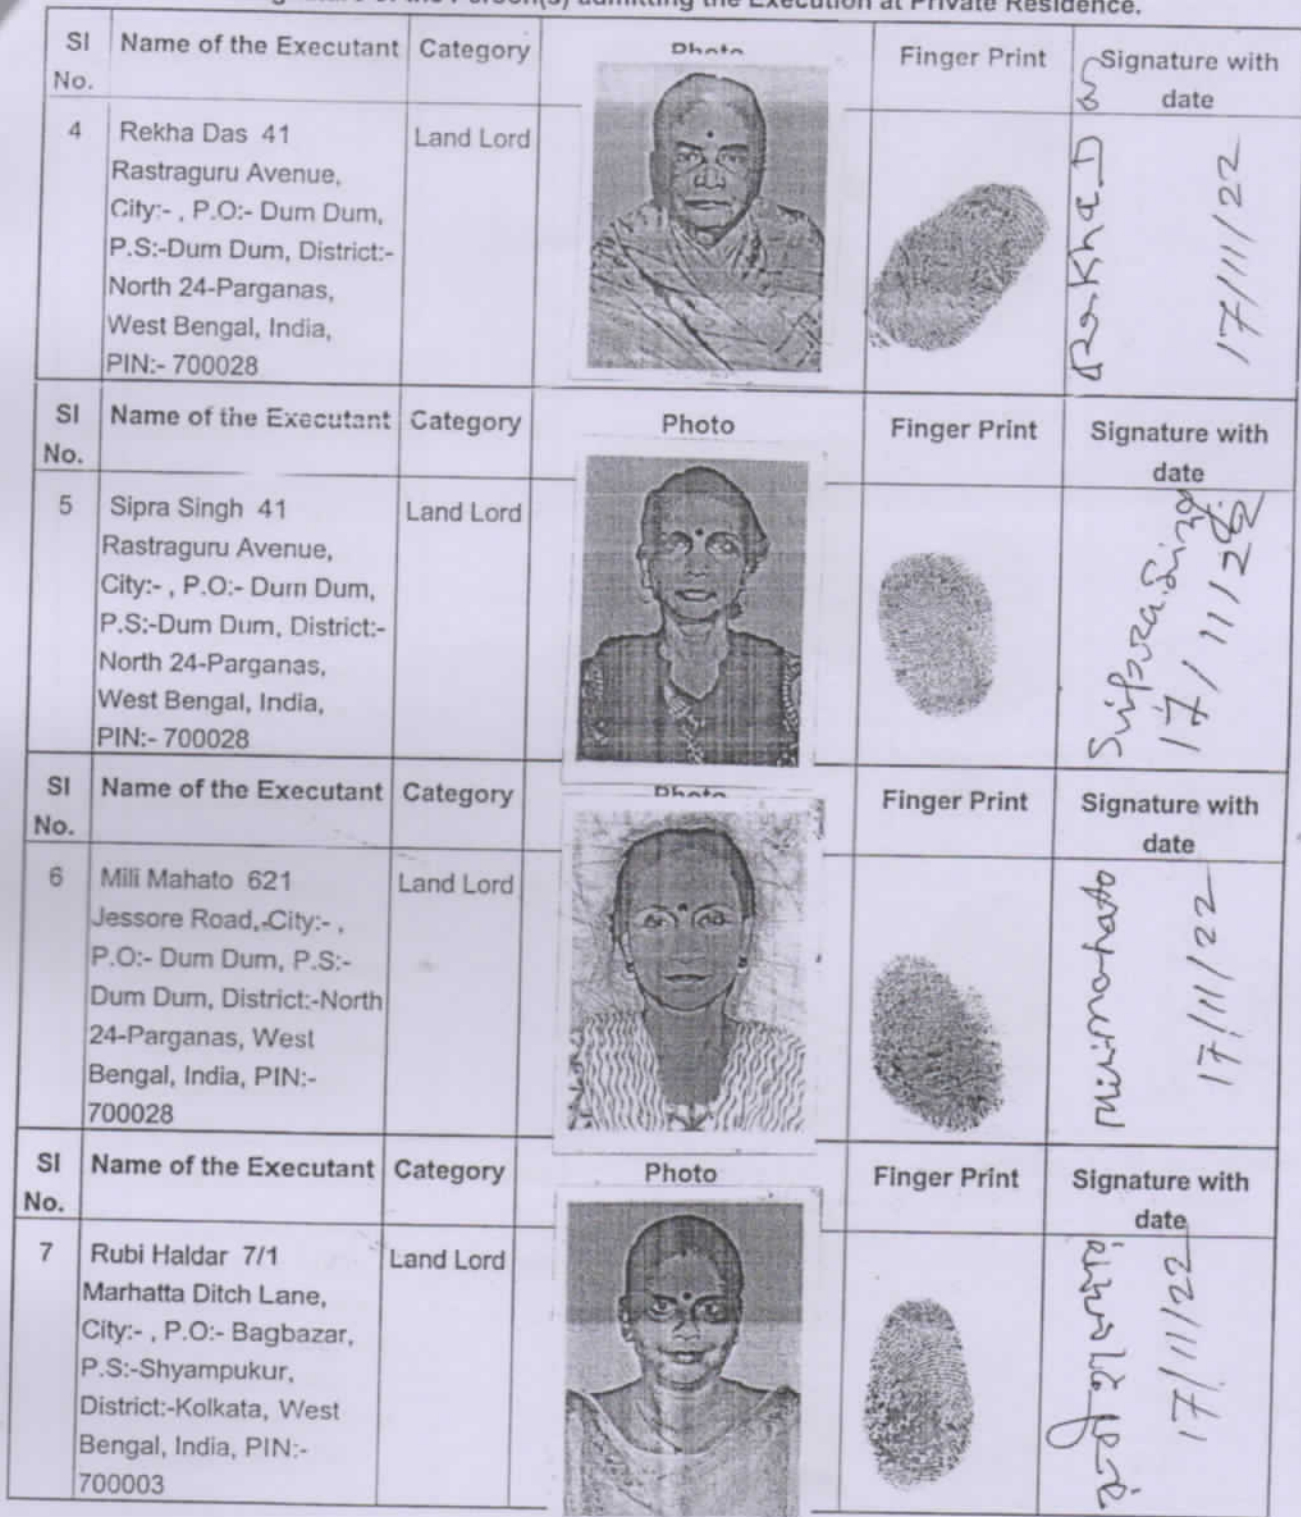 Signature of the Person(s) admitting the Execution at Private Residence.
Sl No. Name of the Executant Category Photo Finger Print Signature with date
4 Rekha Das 41 Land Lord
Rastraguru Avenue,
City:- , P.O:- Dum Dum,
P.S:-Dum Dum, District:-
North 24-Parganas,
West Bengal, India,
PIN:- 700028
Rekha.Das
17/11/22
Sl No. Name of the Executant Category Photo Finger Print Signature with date
5 Sipra Singh 41 Land Lord
Rastraguru Avenue,
City:- , P.O:- Dum Dum,
P.S:-Dum Dum, District:-
North 24-Parganas,
West Bengal, India,
PIN:- 700028
17/11/22
Sl No. Name of the Executant Category Photo Finger Print Signature with date
6 Mili Mahato 621 Land Lord
Jessore Road, City:- ,
P.O:- Dum Dum, P.S:-
Dum Dum, District:-North
24-Parganas, West
Bengal, India, PIN:-
700028
Mili mahato
17/11/22
Sl No. Name of the Executant Category Photo Finger Print Signature with date
7 Rubi Haldar 7/1 Land Lord
Marhatta Ditch Lane,
City:- , P.O:- Bagbazar,
P.S:-Shyampukur,
District:-Kolkata, West
Bengal, India, PIN:-
700003
17/11/22